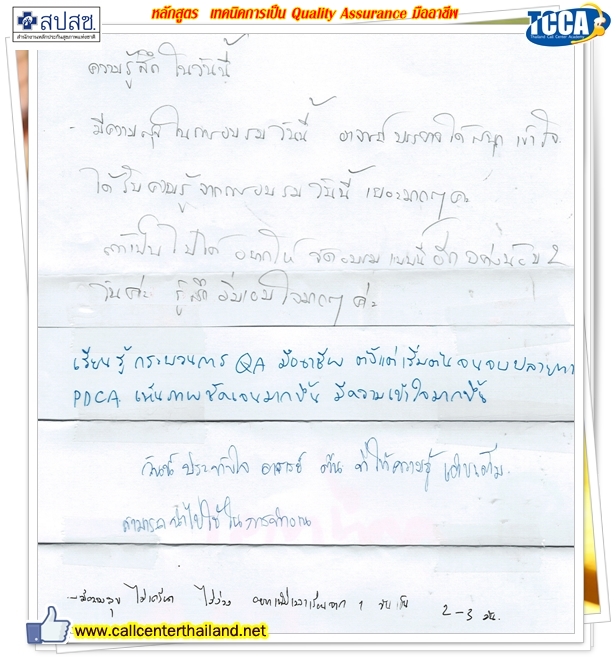 สปสช.
สำนักงานหลักประกันสุขภาพแห่งชาติ
หลักสูตร เทคนิคการเป็น Quality Assurance มืออาชีพ
TCCA
Thailand Call Center Academy
ความรู้สึกในวันนี้
- มีความสุขในการอบรมวันนี้ อาจารย์บรรยายได้สนุก เข้าใจ
ได้รับความรู้จากการอบรมวันนี้ เยอะมากๆ ค่ะ
ถ้าเป็นไปได้ อยากให้ จัดอบรมแบบนี้อีก อย่างน้อย 2
วันค่ะ รู้สึกอิ่มเอมใจมากๆ ค่ะ
เรียนรู้กระบวนการ QA มืออาชีพ ตั้งแต่เริ่มต้นจนจบปลายทาง
PDCA เห็นภาพชัดเจนมากขึ้น มีความเข้าใจมากขึ้น
วันนี้ ประทับใจ อาจารย์ ที่ให้ความรู้ เต็มเปี่ยม
สามารถนำไปใช้ในการทำงาน
- มีความสุข ไม่เครียด ไม่ง่วง อยากเพิ่มเวลาเรียนจาก 1 วัน เป็น 2-3 วัน.
www.callcenterthailand.net